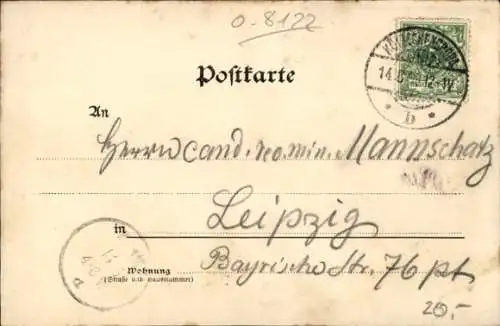 0-8122
Postkarte
An
Herrn cand. re. min. Mannschatz
in Leipzig
Wohnung
(Straße und Hausnummer)
Bayrische Str. 76 pt
20,-
b